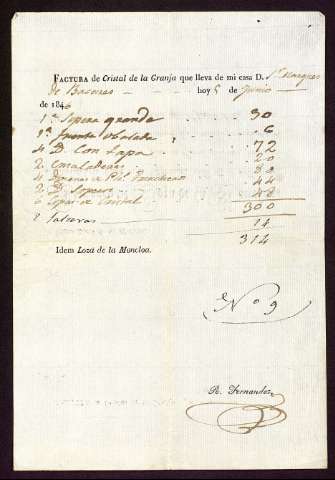 FACTURA de Cristal de la Granja que lleva de mi casa D. Sr Marques
de Bacares hoy 6 de Junio
de 184
1a Sopera grande 30
1a fuente obalada 6
4 D. Con tapa 72
2 Ensaladeras 20
4 80
2 D. Sopera 44
6 Copas de Cristal 48
300
2 Salseras 14
314
Idem Loza de la Moncloa.
No 9
R. Fernandez